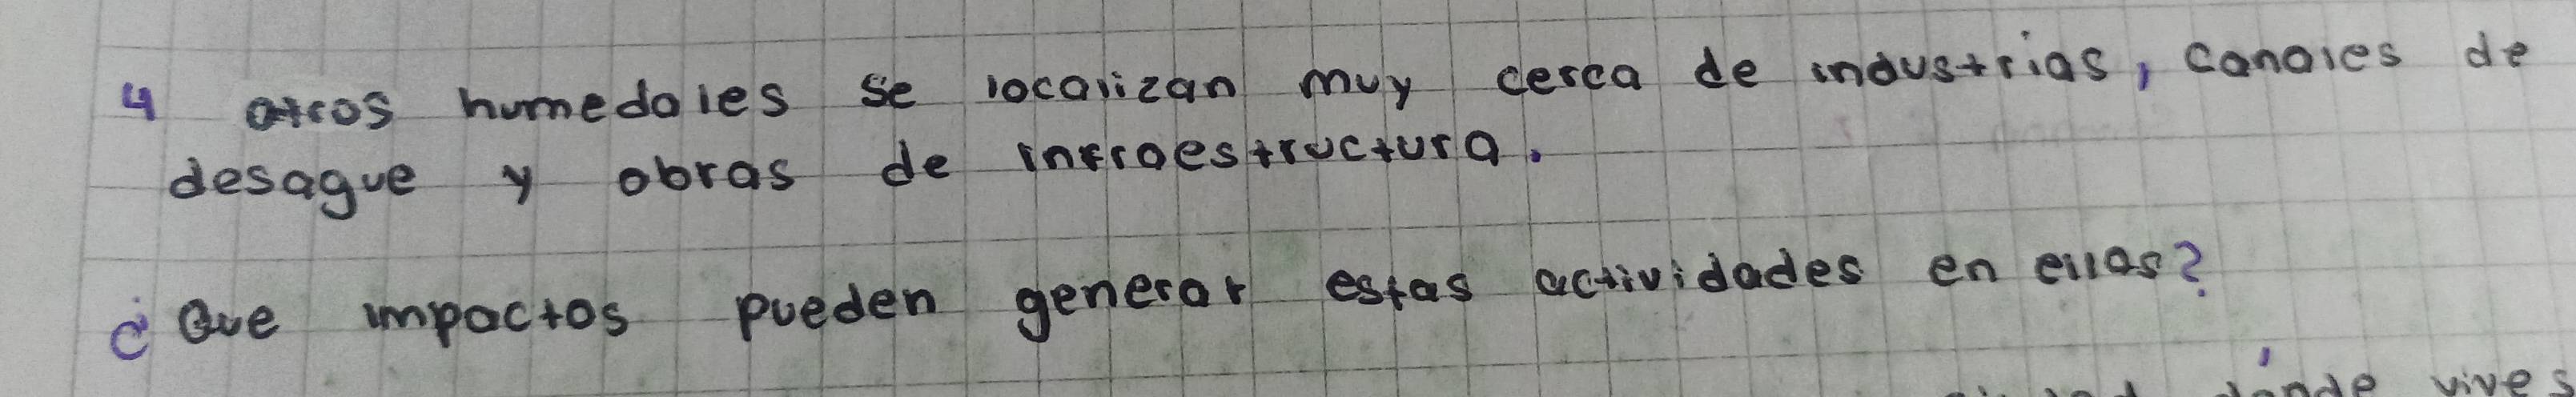 4 otros humedales se localizan muy cerca de industrias, canales de
desague y obras de infraestructura.
¿Que impactos pueden generar estas actividades en ellos?
donde vives